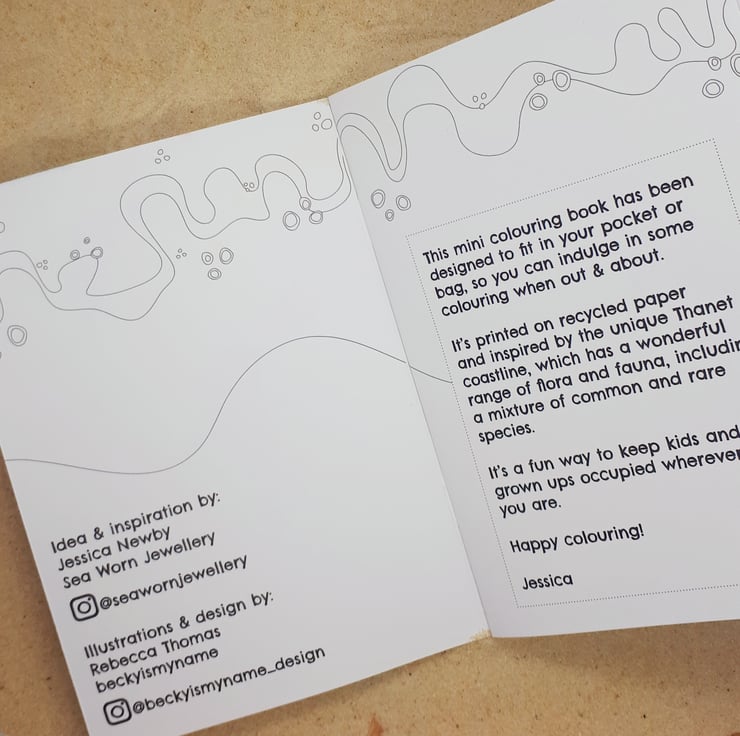 Idea & inspiration by:
Jessica Newby
Sea Worn Jewellery
@seawornjewellery
Illustrations & design by:
Rebecca Thomas
beckyismyname
@beckyismyname_design
This mini colouring book has been
designed to fit in your pocket or
bag, so you can indulge in some
colouring when out & about.
It's printed on recycled paper
and inspired by the unique Thanet
coastline, which has a wonderful
range of flora and fauna, includin
a mixture of common and rare
species.
It's a fun way to keep kids and
grown ups occupied wherever
you are.
Happy colouring!
Jessica